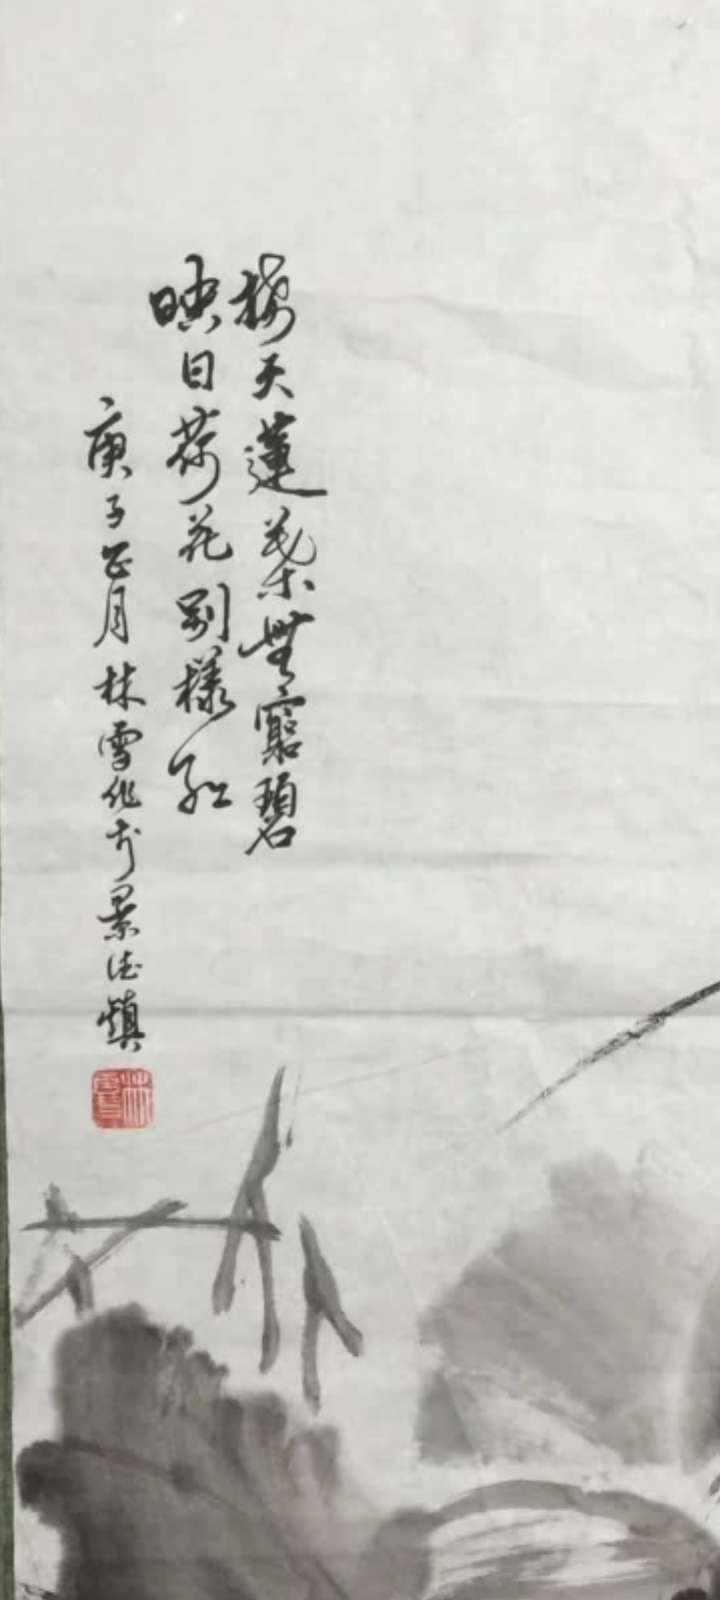 接天蓮葉無窮碧
映日荷花別樣紅
庚子月林雪作於景德鎮